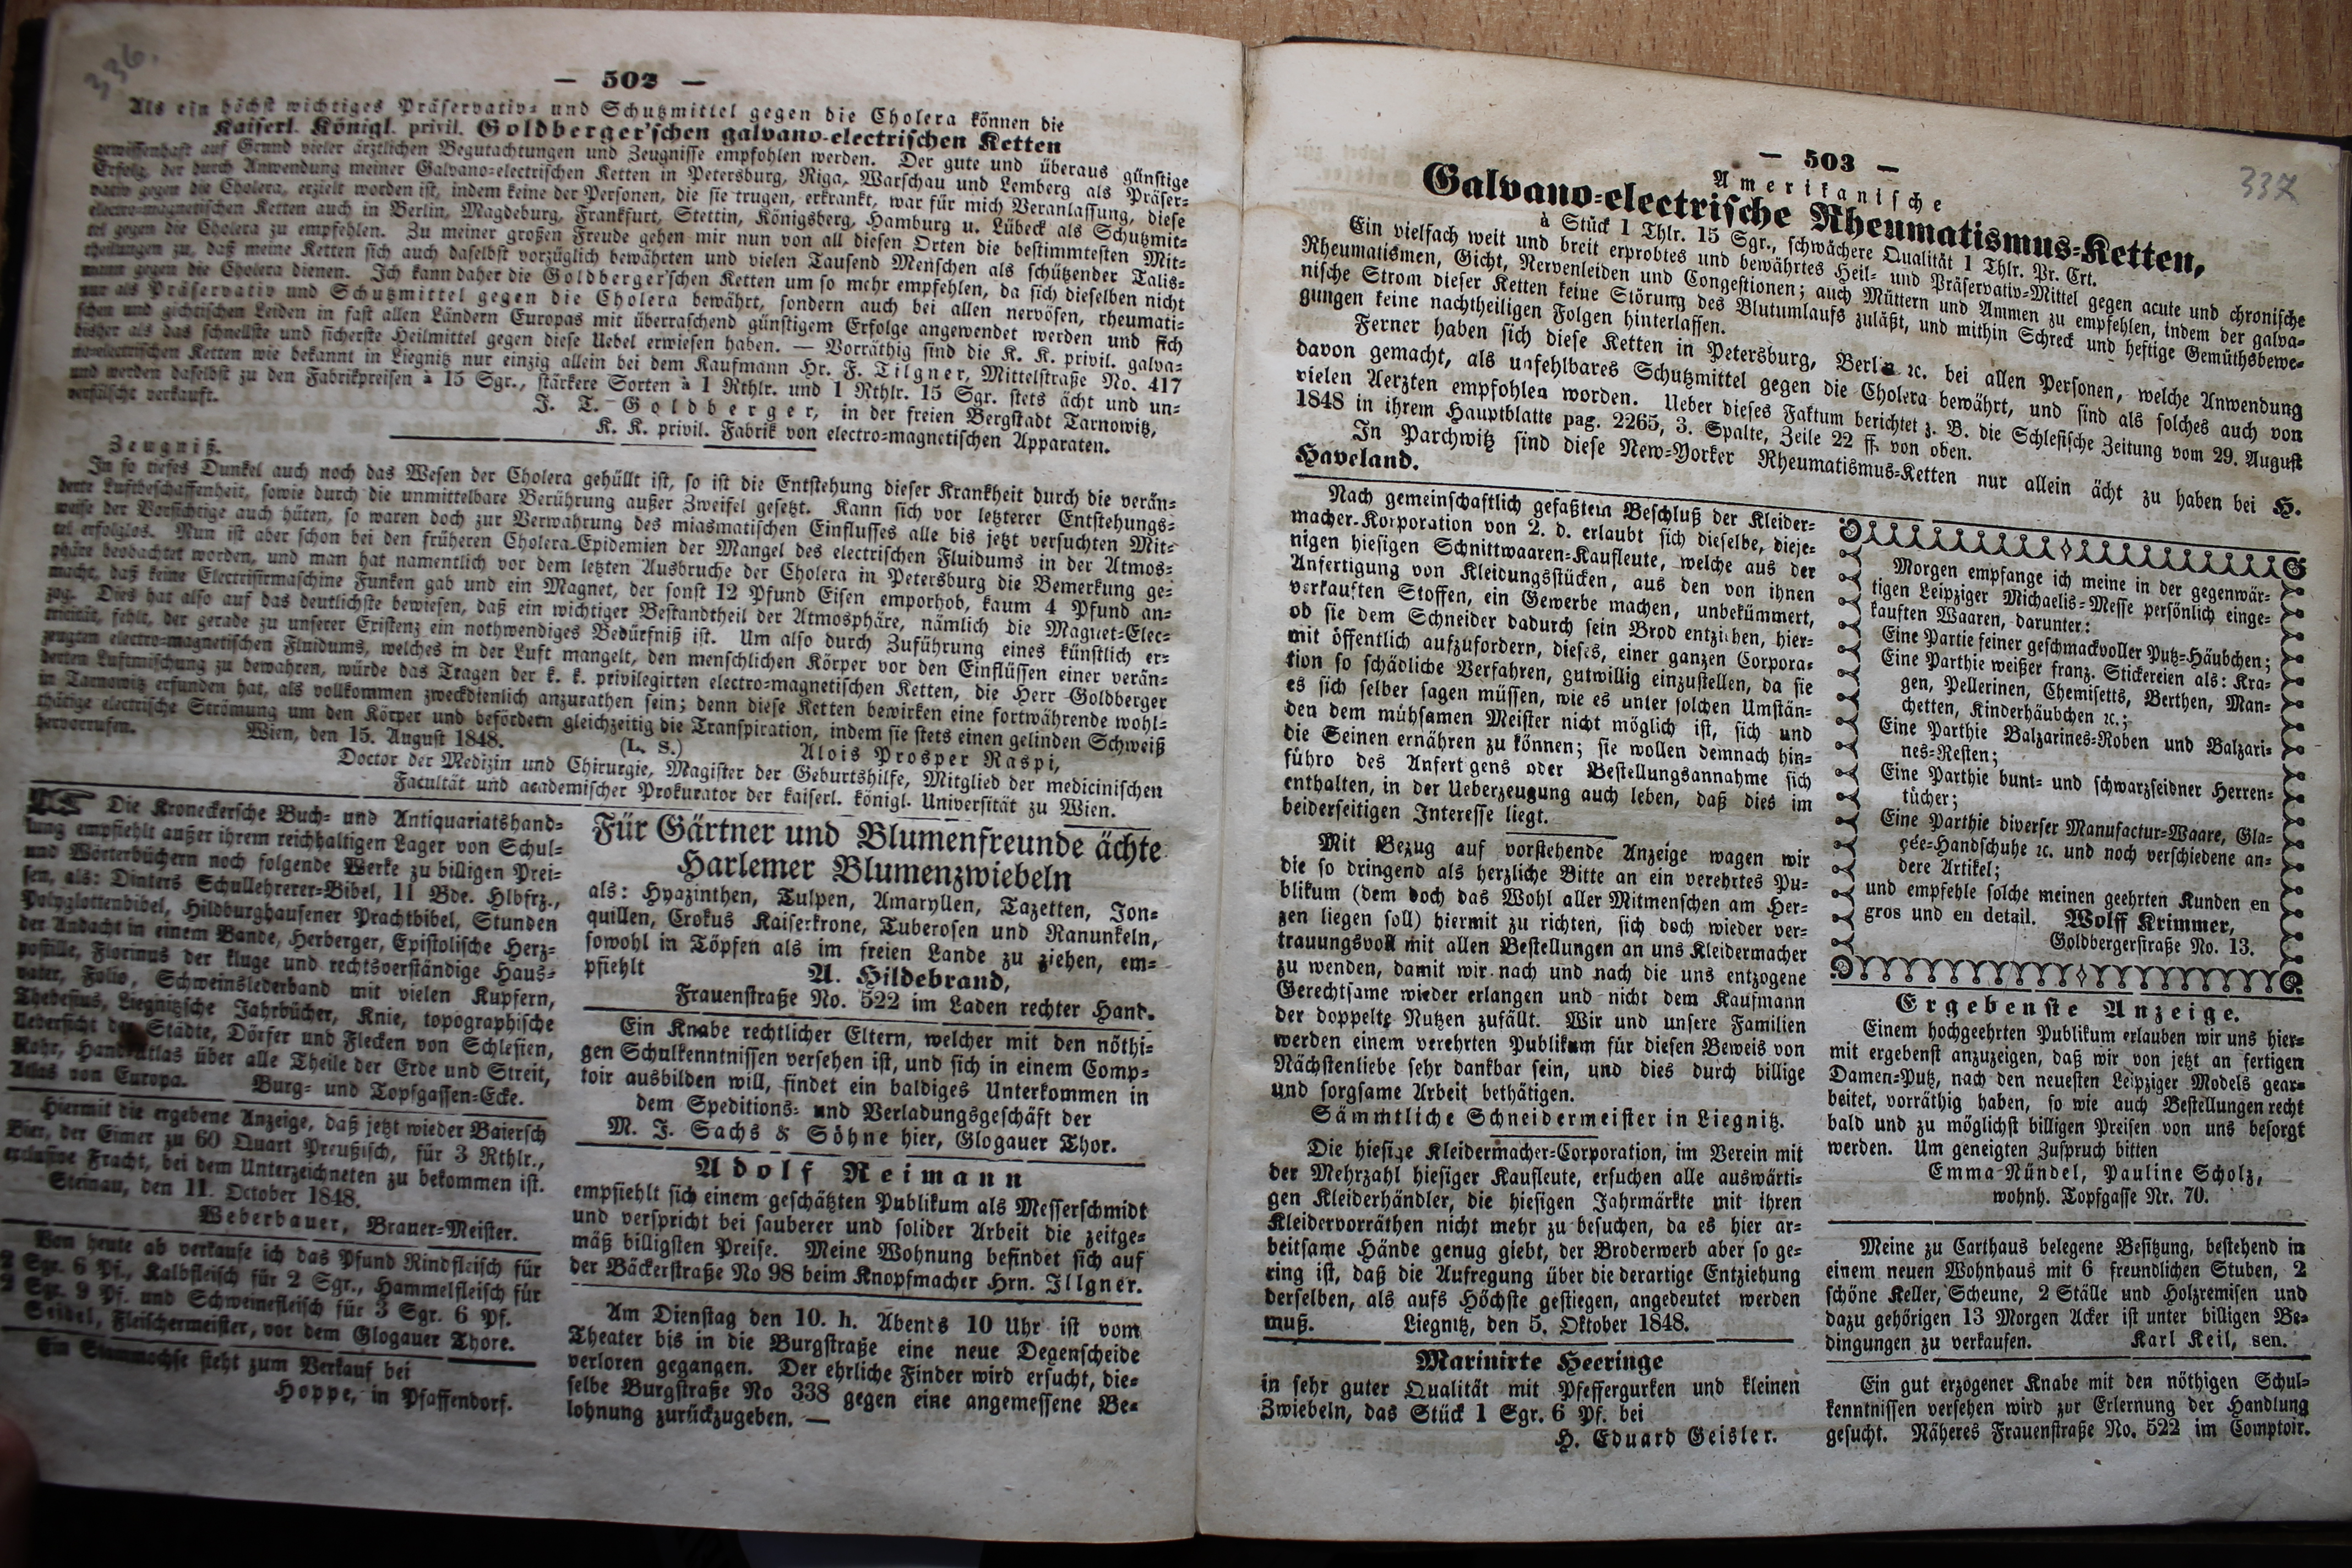 336.
— 502 —
Als ein höchst wichtiges Präservativ- und Schutzmittel gegen die Cholera können die
Kaiserl. Königl. privil. Goldberger'schen galvano-electrischen Ketten
gewissenhaft auf Grund vieler ärztlichen Begutachtungen und Zeugnisse empfohlen werden. Der gute und überaus günstige
Erfolg, der durch Anwendung meiner Galvano-electrischen Ketten in Petersburg, Riga, Warschau und Lemberg als Präser-
vativ gegen die Cholera, erzielt worden ist, indem keine der Personen, die sie trugen, erkrankt, war für mich Veranlassung, diese
electro-magnetischen Ketten auch in Berlin, Magdeburg, Frankfurt, Stettin, Königsberg, Hamburg u. Lübeck als Schutzmit-
tel gegen die Cholera zu empfehlen. Zu meiner großen Freude gehen mir nun von all diesen Orten die bestimmtesten Mit-
theilungen zu, daß meine Ketten sich auch daselbst vorzüglich bewährten und vielen Tausend Menschen als schützender Talis-
mann gegen die Cholera dienen. Ich kann daher die Goldberger'schen Ketten um so mehr empfehlen, da sich dieselben nicht
nur als Präservativ und Schutzmittel gegen die Cholera bewährt, sondern auch bei allen nervösen, rheumati-
schen und gichtischen Leiden in fast allen Ländern Europas mit überraschend günstigem Erfolge angewendet werden und sich
bisher als das schnellste und sicherste Heilmittel gegen diese Uebel erwiesen haben. — Vorräthig sind die K. K. privil. galva-
no-electrischen Ketten wie bekannt in Liegnitz nur einzig allein bei dem Kaufmann Hr. F. Tilgner, Mittelstraße No. 417
und werden daselbst zu den Fabrikpreisen à 15 Sgr., stärkere Sorten à 1 Rthlr. und 1 Rthlr. 15 Sgr. stets ächt und un-
verfälscht verkauft.
J. T. Goldberger, in der freien Bergstadt Tarnowitz,
K. K. privil. Fabrik von electro-magnetischen Apparaten.
Zeugniß.
In so tiefes Dunkel auch noch das Wesen der Cholera gehüllt ist, so ist die Entstehung dieser Krankheit durch die verän-
derte Luftbeschaffenheit, sowie durch die unmittelbare Berührung außer Zweifel gesetzt. Kann sich vor letzterer Entstehungs-
weise der Vorsichtige auch hüten, so waren doch zur Verwahrung des miasmatischen Einflusses alle bis jetzt versuchten Mit-
tel erfolglos. Nun ist aber schon bei den früheren Cholera-Epidemien der Mangel des electrischen Fluidums in der Atmos-
phäre beobachtet worden, und man hat namentlich vor dem letzten Ausbruche der Cholera in Petersburg die Bemerkung ge-
macht, daß keine Electrisirmaschine Funken gab und ein Magnet, der sonst 12 Pfund Eisen emporhob, kaum 4 Pfund an-
zog. Dies hat also auf das deutlichste bewiesen, daß ein wichtiger Bestandtheil der Atmosphäre, nämlich die Magnet-Elec-
tricität, fehlt, der gerade zu unserer Existenz ein nothwendiges Bedürfniß ist. Um also durch Zuführung eines künstlich er-
zeugten electro-magnetischen Fluidums, welches in der Luft mangelt, den menschlichen Körper vor den Einflüssen einer verän-
derten Luftmischung zu bewahren, würde das Tragen der k. k. privilegirten electro-magnetischen Ketten, die Herr Goldberger
in Tarnowitz erfunden hat, als vollkommen zweckdienlich anzurathen sein; denn diese Ketten bewirken eine fortwährende wohl-
thätige electrische Strömung um den Körper und befördern gleichzeitig die Transpiration, indem sie stets einen gelinden Schweiß
hervorrufen. Wien, den 15. August 1848. (L. S.) Alois Prosper Raspi,
Doctor der Medizin und Chirurgie, Magister der Geburtshilfe, Mitglied der medicinischen
Facultät und academischer Prokurator der kaiserl. königl. Universität zu Wien.
Die Kroneckersche Buch- und Antiquariatshand-
lung empfiehlt außer ihrem reichhaltigen Lager von Schul-
und Wörterbüchern noch folgende Werke zu billigen Prei-
sen, als: Dinters Schullehrerer-Bibel, 11 Bde. Hlbfrz.,
Polyglottenbibel, Hildburghausener Prachtbibel, Stunden
der Andacht in einem Bande, Herberger, Epistolische Herz-
postille, Florinus der kluge und rechtsverständige Haus-
vater, Folio, Schweinslederband mit vielen Kupfern,
Thebesius, Liegnitzsche Jahrbücher, Knie, topographische
Uebersicht der Städte, Dörfer und Flecken von Schlesien,
Rohr, Handatlas über alle Theile der Erde und Streit,
Atlas von Europa. Burg- und Topfgassen-Ecke.
Hiermit die ergebene Anzeige, daß jetzt wieder Baiersch
Bier, der Eimer zu 60 Quart Preußisch, für 3 Rthlr.,
exclusive Fracht, bei dem Unterzeichneten zu bekommen ist.
Steinau, den 11. October 1848.
Weberbauer, Brauer-Meister.
Von heute ab verkaufe ich das Pfund Rindfleisch für
2 Sgr. 6 Pf., Kalbfleisch für 2 Sgr., Hammelfleisch für
2 Sgr. 9 Pf. und Schweinefleisch für 3 Sgr. 6 Pf.
Seidel, Fleischermeister, vor dem Glogauer Thore.
Ein Stammochse steht zum Verkauf bei
Hoppe, in Pfaffendorf.
Für Gärtner und Blumenfreunde ächte
Harlemer Blumenzwiebeln
als: Hyazinthen, Tulpen, Amaryllen, Tazetten, Jon-
quillen, Crokus Kaiserkrone, Tuberosen und Ranunkeln,
sowohl in Töpfen als im freien Lande zu ziehen, em-
pfiehlt A. Hildebrand,
Frauenstraße No. 522 im Laden rechter Hand.
Ein Knabe rechtlicher Eltern, welcher mit den nöthi-
gen Schulkenntnissen versehen ist, und sich in einem Comp-
toir ausbilden will, findet ein baldiges Unterkommen in
dem Speditions- und Verladungsgeschäft der
M. J. Sachs & Söhne hier, Glogauer Thor.
Adolf Reimann
empfiehlt sich einem geschätzten Publikum als Messerschmidt
und verspricht bei sauberer und solider Arbeit die zeitge-
mäß billigsten Preise. Meine Wohnung befindet sich auf
der Bäckerstraße No 98 beim Knopfmacher Hrn. Illgner.
Am Dienstag den 10. h. Abends 10 Uhr ist vom
Theater bis in die Burgstraße eine neue Degenscheide
verloren gegangen. Der ehrliche Finder wird ersucht, die-
selbe Burgstraße No 338 gegen eine angemessene Be-
lohnung zurückzugeben. —
— 503 —
337
Amerikanische
Galvano-electrische Rheumatismus-Ketten,
à Stück 1 Thlr. 15 Sgr., schwächere Qualität 1 Thlr. Pr. Crt.
Ein vielfach weit und breit erprobtes und bewährtes Heil- und Präservativ-Mittel gegen acute und chronische
Rheumatismen, Gicht, Nervenleiden und Congestionen; auch Müttern und Ammen zu empfehlen, indem der galva-
nische Strom dieser Ketten keine Störung des Blutumlaufs zuläßt, und mithin Schreck und heftige Gemüthsbewe-
gungen keine nachtheiligen Folgen hinterlassen.
Ferner haben sich diese Ketten in Petersburg, Berlin ꝛc. bei allen Personen, welche Anwendung
davon gemacht, als unfehlbares Schutzmittel gegen die Cholera bewährt, und sind als solches auch von
vielen Aerzten empfohlen worden. Ueber dieses Faktum berichtet z. B. die Schlesische Zeitung vom 29. August
1848 in ihrem Hauptblatte pag. 2265, 3. Spalte, Zeile 22 ff. von oben.
In Parchwitz sind diese New-Yorker Rheumatismus-Ketten nur allein ächt zu haben bei H.
Haveland.
Nach gemeinschaftlich gefaßtem Beschluß der Kleider-
macher-Korporation von 2. d. erlaubt sich dieselbe, dieje-
nigen hiesigen Schnittwaaren-Kaufleute, welche aus der
Anfertigung von Kleidungsstücken, aus den von ihnen
verkauften Stoffen, ein Gewerbe machen, unbekümmert,
ob sie dem Schneider dadurch sein Brod entziehen, hier-
mit öffentlich aufzufordern, dieses, einer ganzen Corpora-
tion so schädliche Verfahren, gutwillig einzustellen, da sie
es sich selber sagen müssen, wie es unter solchen Umstän-
den dem mühsamen Meister nicht möglich ist, sich und
die Seinen ernähren zu können; sie wollen demnach hin-
führo des Anfertigens oder Bestellungsannahme sich
enthalten, in der Ueberzeugung auch leben, daß dies im
beiderseitigen Interesse liegt.
Mit Bezug auf vorstehende Anzeige wagen wir
die so dringend als herzliche Bitte an ein verehrtes Pu-
blikum (dem doch das Wohl aller Mitmenschen am Her-
zen liegen soll) hiermit zu richten, sich doch wieder ver-
trauungsvoll mit allen Bestellungen an uns Kleidermacher
zu wenden, damit wir nach und nach die uns entzogene
Gerechtsame wieder erlangen und nicht dem Kaufmann
der doppelte Nutzen zufällt. Wir und unsere Familien
werden einem verehrten Publikum für diesen Beweis von
Nächstenliebe sehr dankbar sein, und dies durch billige
und sorgsame Arbeit bethätigen.
Sämmtliche Schneidermeister in Liegnitz.
Die hiesige Kleidermacher-Corporation, im Verein mit
der Mehrzahl hiesiger Kaufleute, ersuchen alle auswärti-
gen Kleiderhändler, die hiesigen Jahrmärkte mit ihren
Kleidervorräthen nicht mehr zu besuchen, da es hier ar-
beitsame Hände genug giebt, der Broderwerb aber so ge-
ring ist, daß die Aufregung über die derartige Entziehung
derselben, als aufs Höchste gestiegen, angedeutet werden
muß. Liegnitz, den 5. Oktober 1848.
Marinirte Heeringe
in sehr guter Qualität mit Pfeffergurken und kleinen
Zwiebeln, das Stück 1 Sgr. 6 Pf. bei
H. Eduard Geisler.
Morgen empfange ich meine in der gegenwär-
tigen Leipziger Michaelis-Messe persönlich einge-
kauften Waaren, darunter:
Eine Partie feiner geschmackvoller Putz-Häubchen;
Eine Parthie weißer franz. Stickereien als: Kra-
gen, Pellerinen, Chemisetts, Berthen, Man-
chetten, Kinderhäubchen ꝛc.;
Eine Parthie Balzarines-Roben und Balzari-
nes-Resten;
Eine Parthie bunt- und schwarzseidner Herren-
tücher;
Eine Parthie diverser Manufactur-Waare, Gla-
çée-Handschuhe ꝛc. und noch verschiedene an-
dere Artikel;
und empfehle solche meinen geehrten Kunden en
gros und en detail. Wolff Krimmer,
Goldbergerstraße No. 13.
Ergebenste Anzeige.
Einem hochgeehrten Publikum erlauben wir uns hier-
mit ergebenst anzuzeigen, daß wir von jetzt an fertigen
Damen-Putz, nach den neuesten Leipziger Models gear-
beitet, vorräthig haben, so wie auch Bestellungen recht
bald und zu möglichst billigen Preisen von uns besorgt
werden. Um geneigten Zuspruch bitten
Emma Nündel, Pauline Scholz,
wohnh. Topfgasse Nr. 70.
Meine zu Carthaus belegene Besitzung, bestehend in
einem neuen Wohnhaus mit 6 freundlichen Stuben, 2
schöne Keller, Scheune, 2 Ställe und Holzremisen und
dazu gehörigen 13 Morgen Acker ist unter billigen Be-
dingungen zu verkaufen. Karl Keil, sen.
Ein gut erzogener Knabe mit den nöthigen Schul-
kenntnissen versehen wird zur Erlernung der Handlung
gesucht. Näheres Frauenstraße No. 522 im Comptoir.